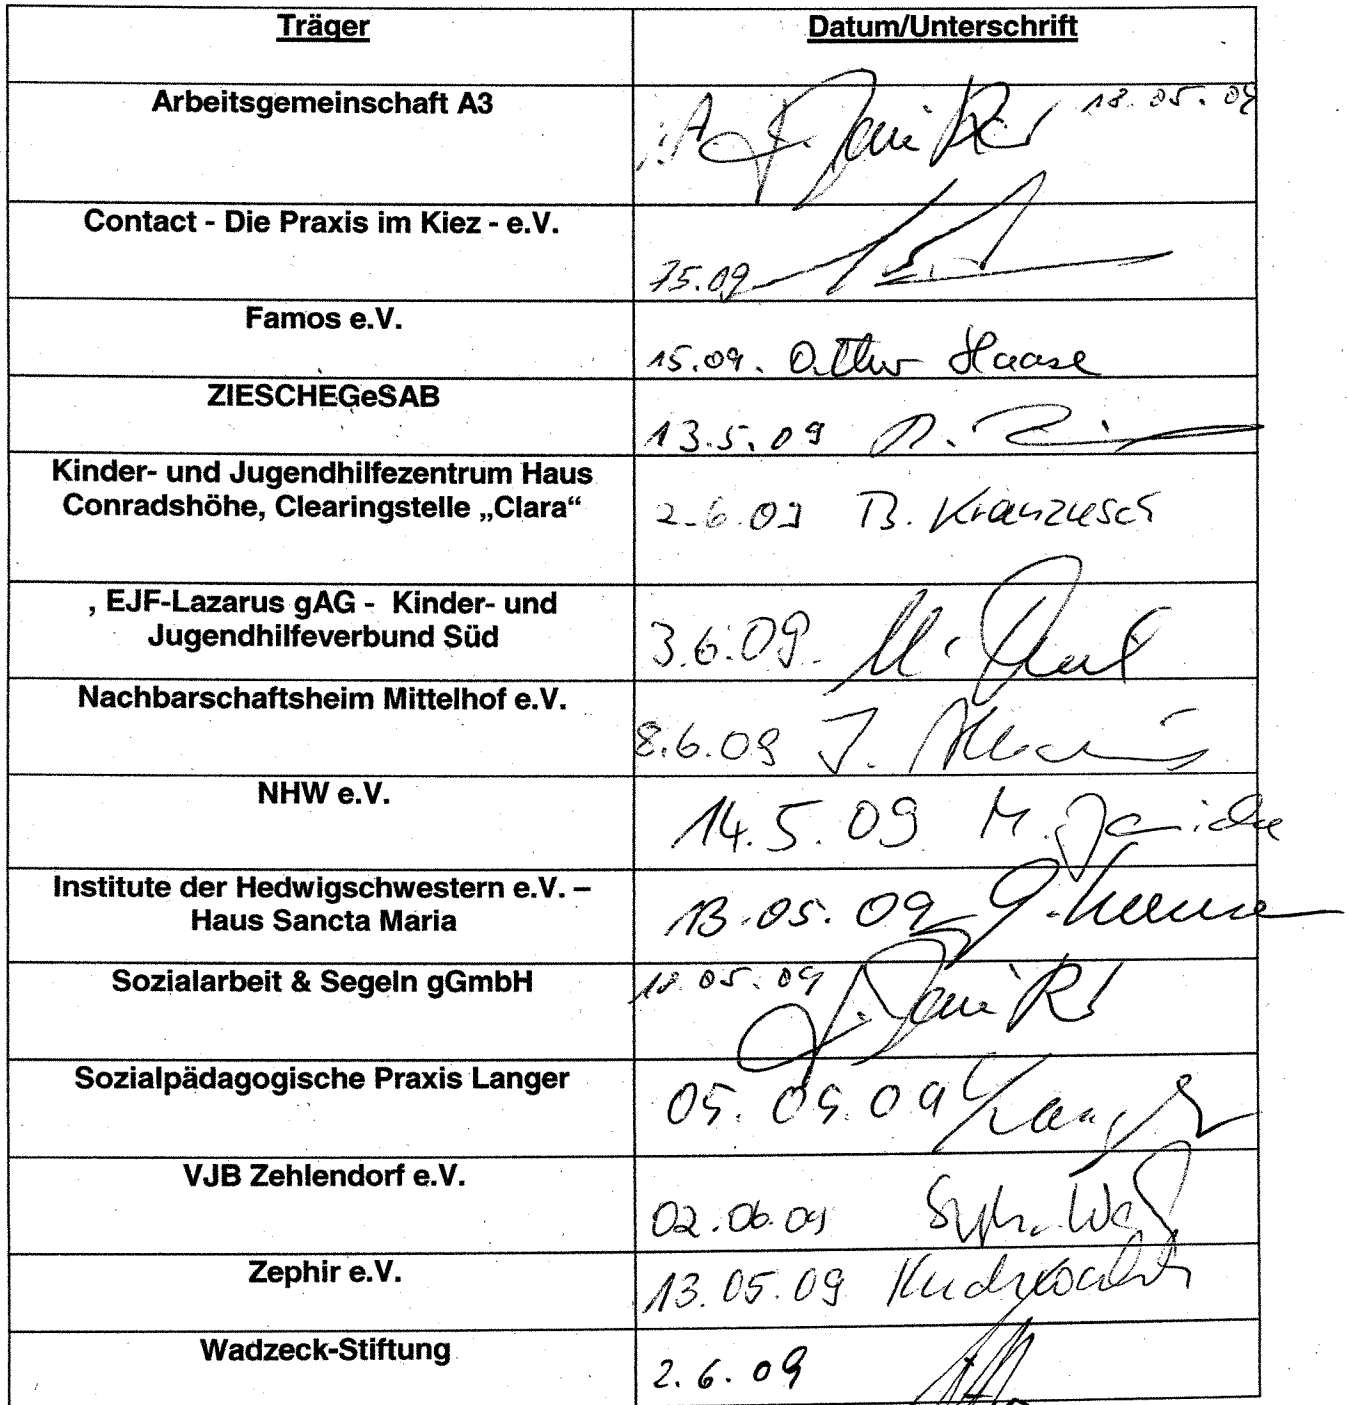 Träger
Datum/Unterschrift
Arbeitsgemeinschaft A3
i.A. 18.05.09
Contact - Die Praxis im Kiez - e.V.
Famos e.V.
15.09. Haase
ZIESCHEGeSAB
13.5.09
Kinder- und Jugendhilfezentrum Haus
Conradshöhe, Clearingstelle „Clara“
2.6.09 B. Kranzusch
, EJF-Lazarus gAG - Kinder- und
Jugendhilfeverbund Süd
3.6.09. M.
Nachbarschaftsheim Mittelhof e.V.
8.6.09 J.
NHW e.V.
14.5.09 M.
Institute der Hedwigschwestern e.V. –
Haus Sancta Maria
13.05.09
Sozialarbeit & Segeln gGmbH
18.05.09
Sozialpädagogische Praxis Langer
05.05.09 Langer
VJB Zehlendorf e.V.
02.06.09
Zephir e.V.
13.05.09
Wadzeck-Stiftung
2.6.09